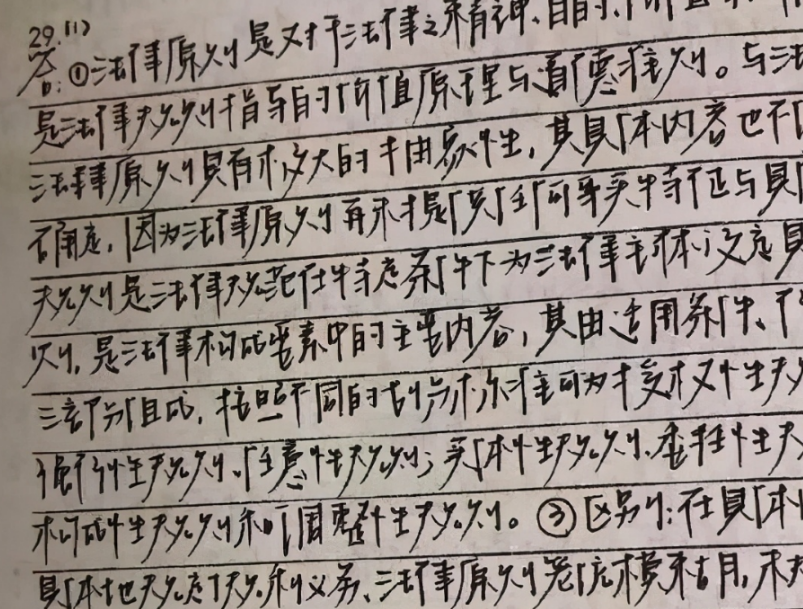 29.(1)
答:①法律原则是对于法律之精神、目的、价值
是法律规则指导的价值原理与道德准则。与法
法律原则具有极大的抽象性,其具体内容也不
确定,因为法律原则再来才是任何事实特征与具
规则是法律规范在特定条件下为法律主体设定具
则,是法律构成要素中的主要内容,其由适用条件、
三部分组成,按照不同的划分标准可为授权性规
强行性规则、任意性规则;实体性规则、委任性规
构成性规则和调整性规则。③区别:在具体
具体地规定了权利义务、法律原则笼统模糊,